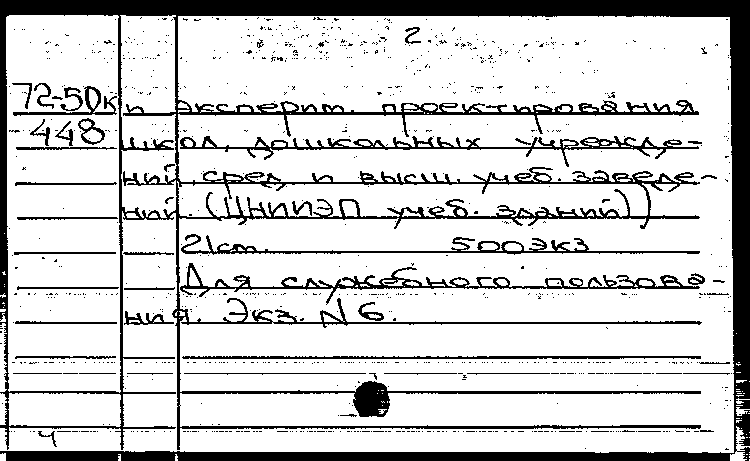 2.
72-50к и эксперим. проектирования
448 школ, дошкольных учрежде-
ний, сред. и высш. учеб. заведе-
ний. (ЦНИИЭП учеб. зданий))
21 см. 500 экз
Для служебного пользова-
ния. Экз. N 6.
ч